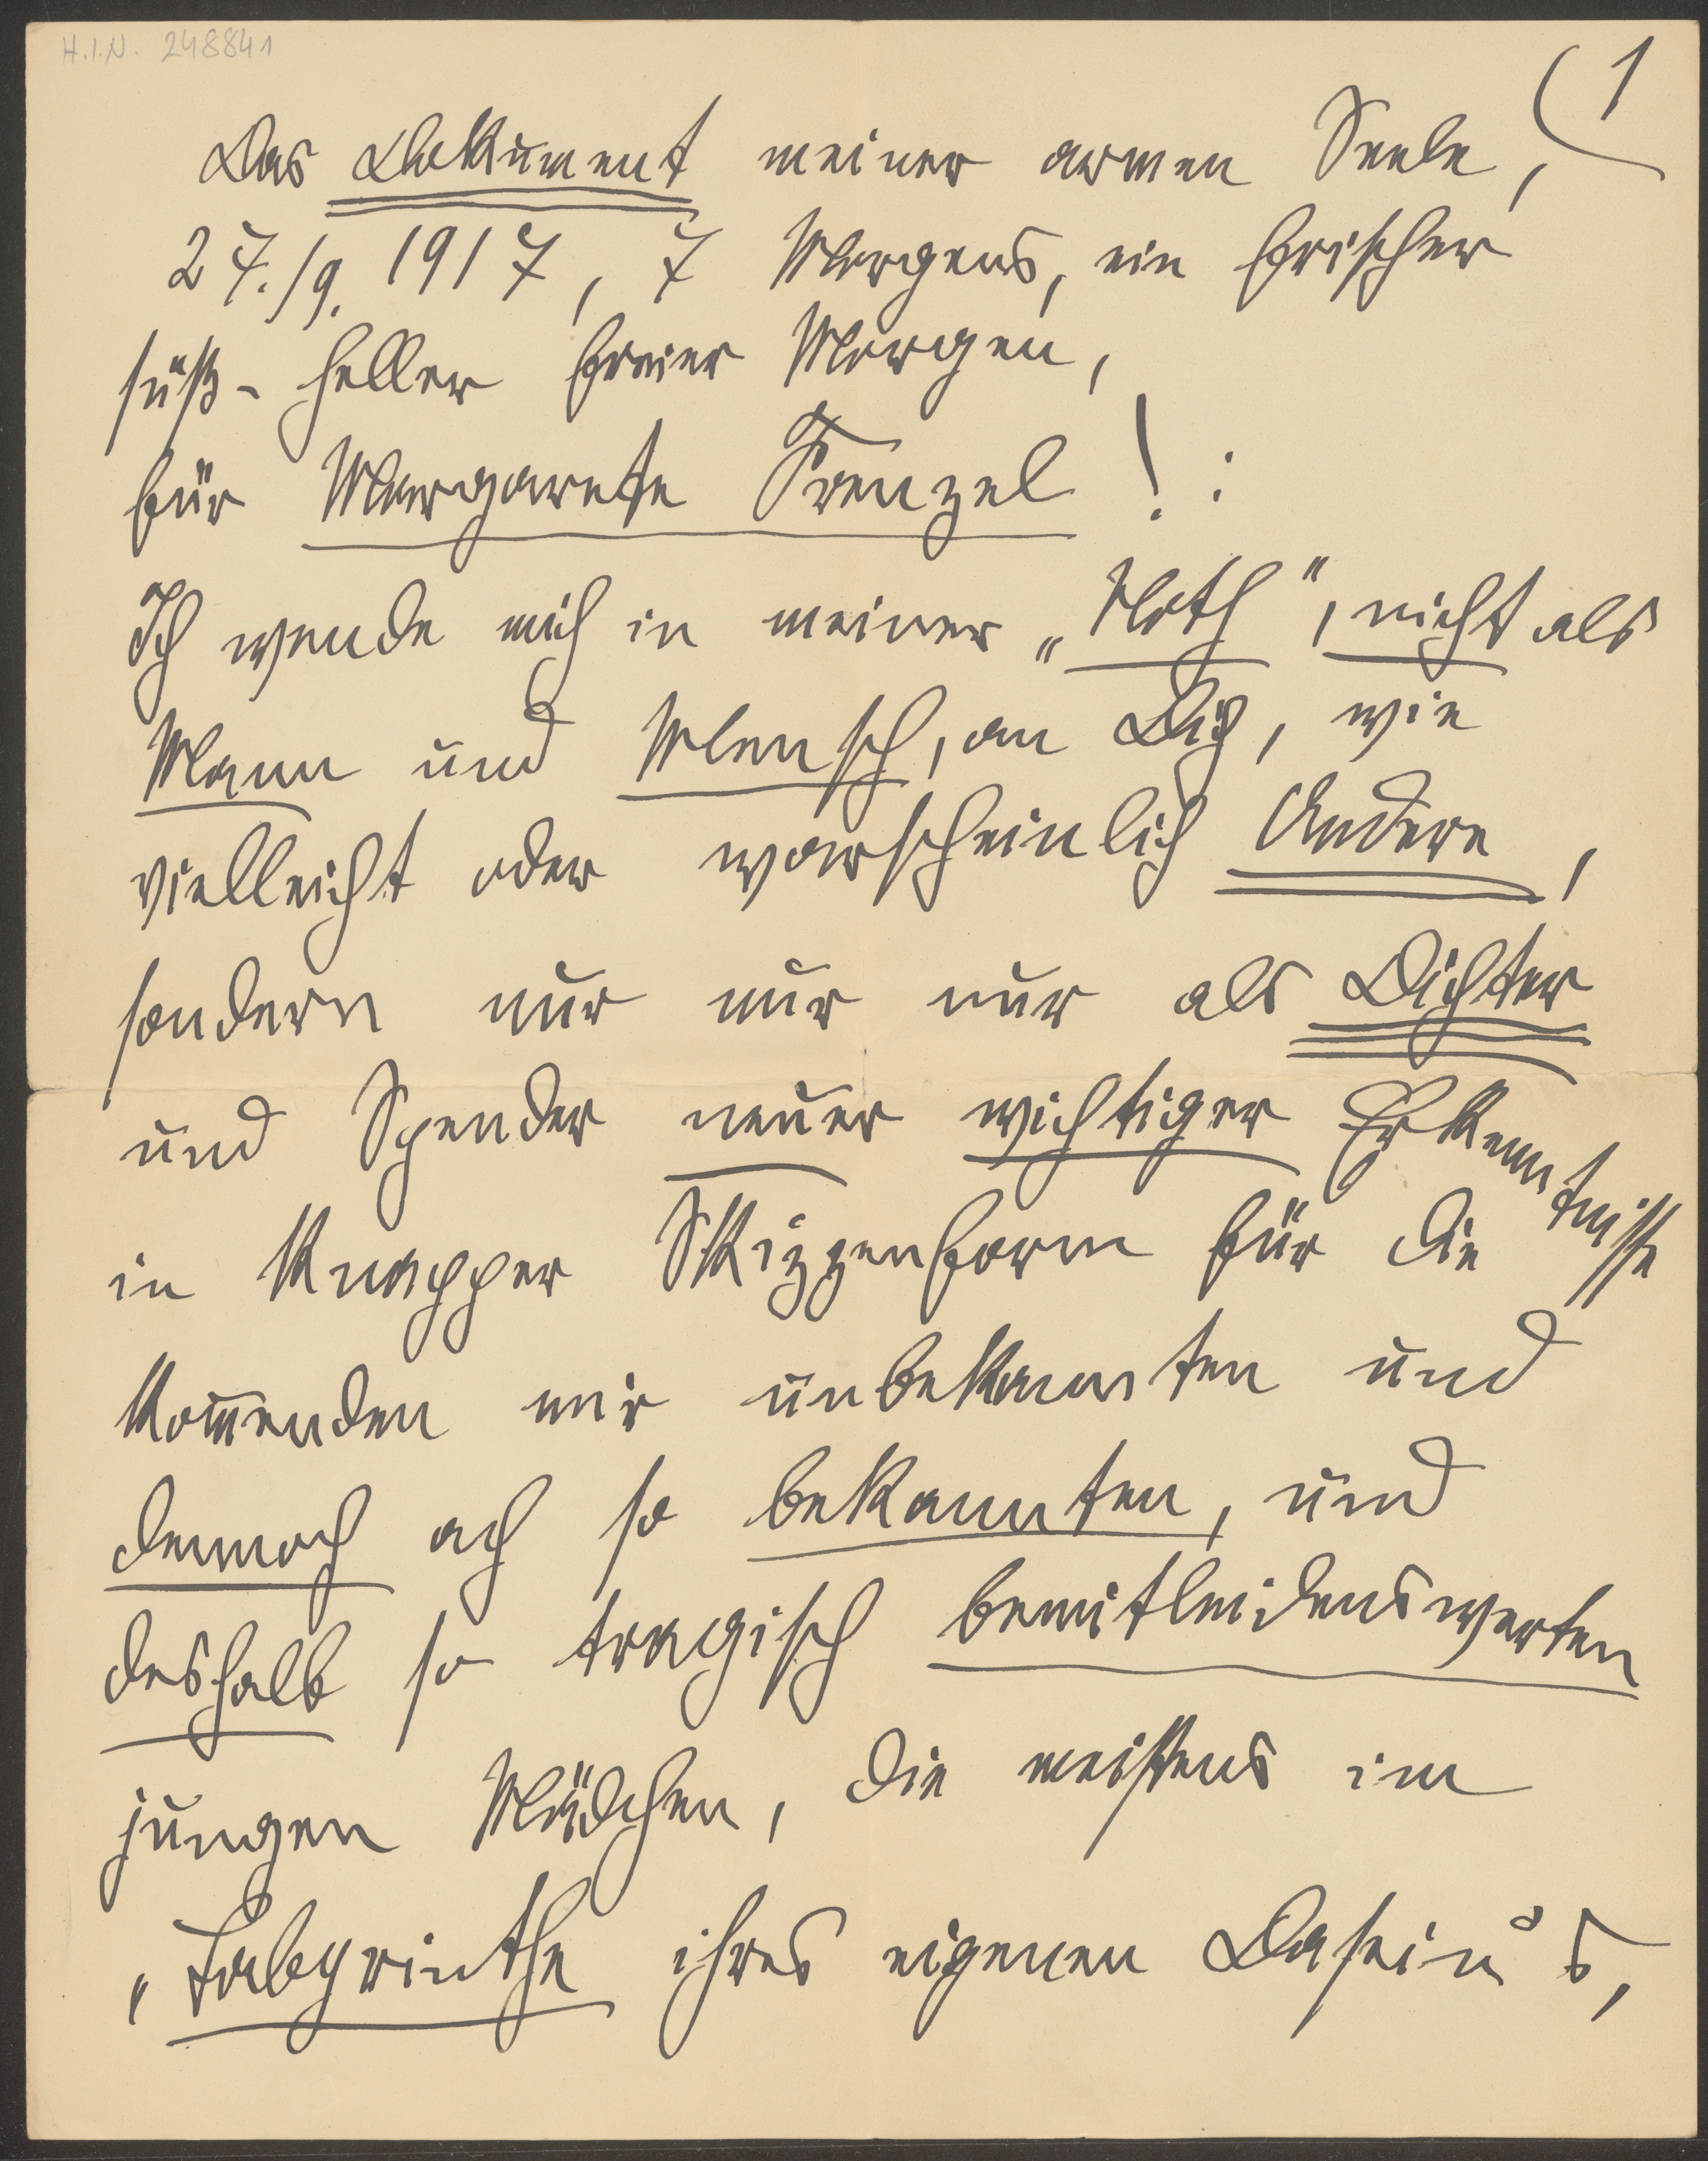 H.I.N. 248841
1
Das Dokument meiner armen Seele,
27./9. 1917, 7 Morgens, ein frischer
süß-heller freier Morgen,
für Margarete Frenzel! :
Ich wende mich in meiner „Noth", nicht als
Mann und Mensch, an Dich, wie
vielleicht oder warscheinlich Andere,
sondern nur nur nur als Dichter
und Spender neuer wichtiger Erkenntnisse
in knapper Skizzenform für die
kom̅enden mir unbekannten und
dennoch ach so bekannten, und
deshalb so tragisch bemitleidenswerten
jungen Mädchen, die meistens im
„Labyrinthe ihres eigenen Dasein's,